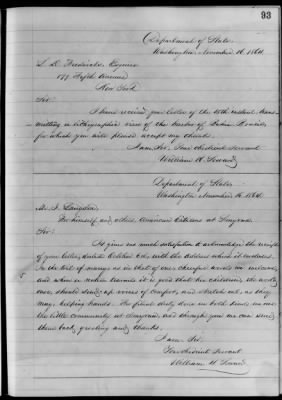 93
Department of State,
Washington November 16, 1864.
Esquire
Fifth Avenue
New York
Sir:
I have received your letter of the 15th instant, trans-
mitting a lithographic view of the harbor of
for which you will please accept my thanks.
I am, Sir, Your obedient Servant
William H. Seward
Department of State,
Washington November 16, 1864.
Mr. J. Langdon
For himself, and others, American Citizens at Smyrna.
Sir:
It gives me much satisfaction to acknowledge the receipt
of your letter, dated October with the address which it encloses.
In the trial of as in that of one, cheerful words are
and when a nation it is good that her children, the world
over, should send up voices of comfort, and stretch out, as they
may, helping hands. For
the little community at Smyrna, and through you we can send
them back, greeting and thanks.
I am, Sir,
Your obedient Servant
William H. Seward